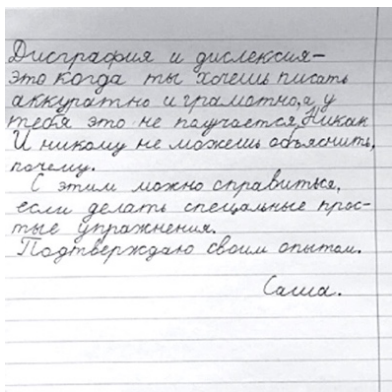 Дисграфия и дислексия–
это когда ты хочешь писать
аккуратно и грамотно, а у
тебя это не паучается, Никак
И никому не можешь объяснить,
почему.
С этим можно справиться,
если делать спецальные прос-
тые упражнения.
Подтверждаю своим опытом.
Саша.